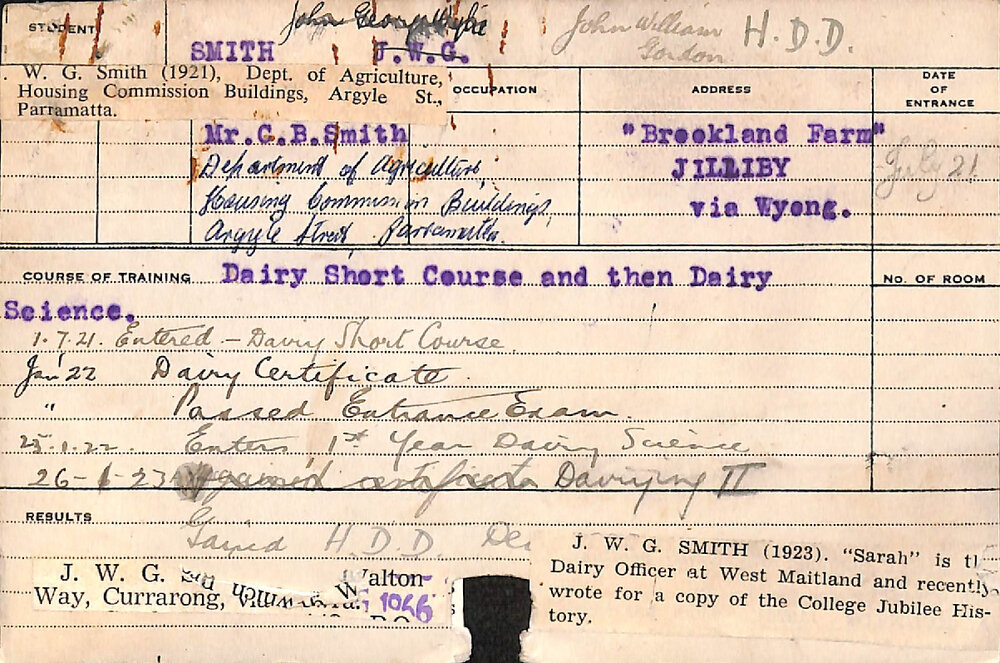 STUDENT
John George Wylie
John William
Gordon
H.D.D.
SMITH J.W.G.
W. G. Smith (1921), Dept. of Agriculture,
Housing Commission Buildings, Argyle St.,
Parramatta.
OCCUPATION
ADDRESS
DATE
OF
ENTRANCE
Mr.C.B.Smith
Department of Agriculture,
Housing Commission Buildings,
Argyle Street Parramatta.
"Brookland Farm"
JILLIBY
via Wyong.
July 21
COURSE OF TRAINING Dairy Short Course and then Dairy
Science.
No. OF ROOM
1.7.21. Entered - Dairy Short Course.
Jan' 22 Dairy Certificate.
" Passed Entrance Exam.
25.1.22. Enters 1st Year Dairy Science
26-1-23 gained certificate Dairying II
RESULTS
Gained H.D.D. Dec
J. W. G. Walton
Way, Currarong,
1066
J. W. G. SMITH (1923). "Sarah" is
Dairy Officer at West Maitland and recently
wrote for a copy of the College Jubilee His-
tory.